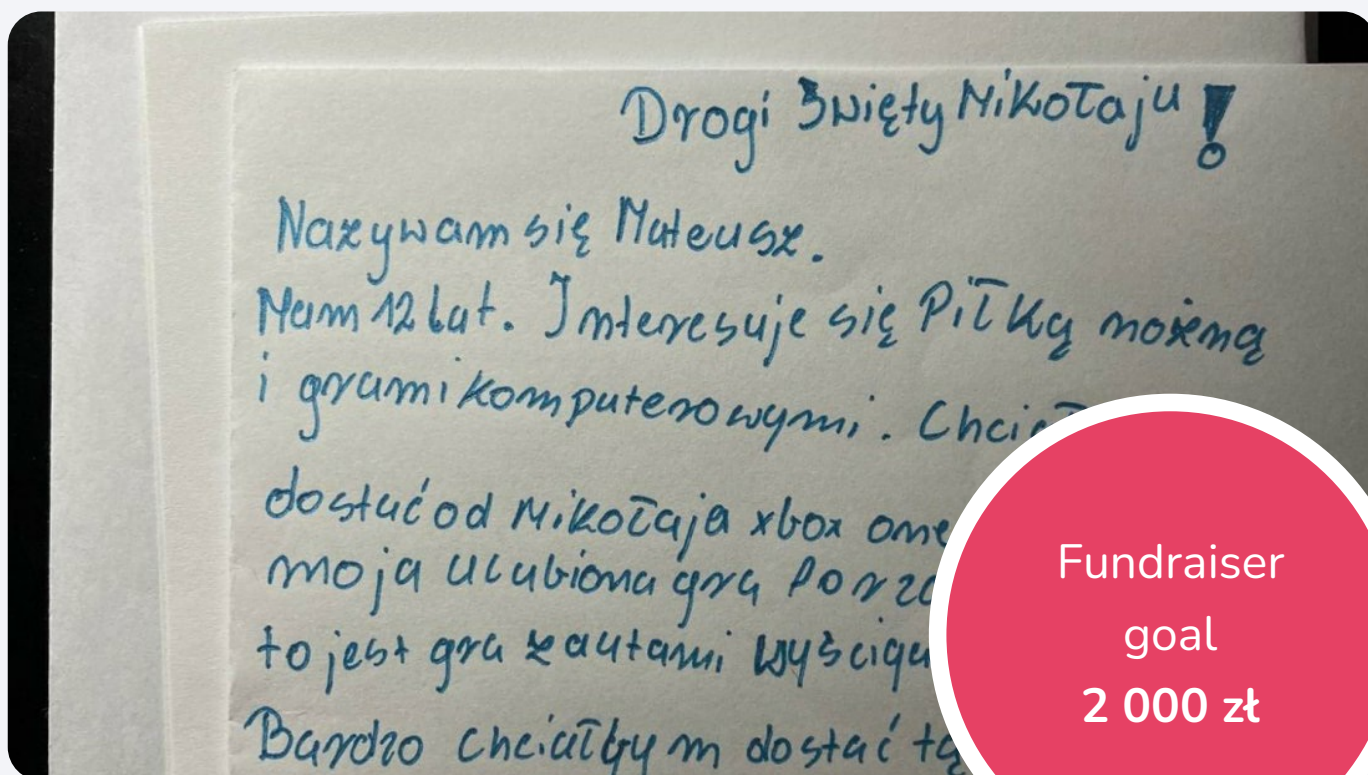 Drogi Święty Mikołaju!
Nazywam się Mateusz.
Mam 12 lat. Interesuje się Piłką nożną
i grami komputerowymi. Chciał
dostać od Mikołaja xbox one
moja ulubiona grą
to jest gra z autami wyścigo
Bardzo chciałbym dostać tą
Fundraiser
goal
2 000 zł